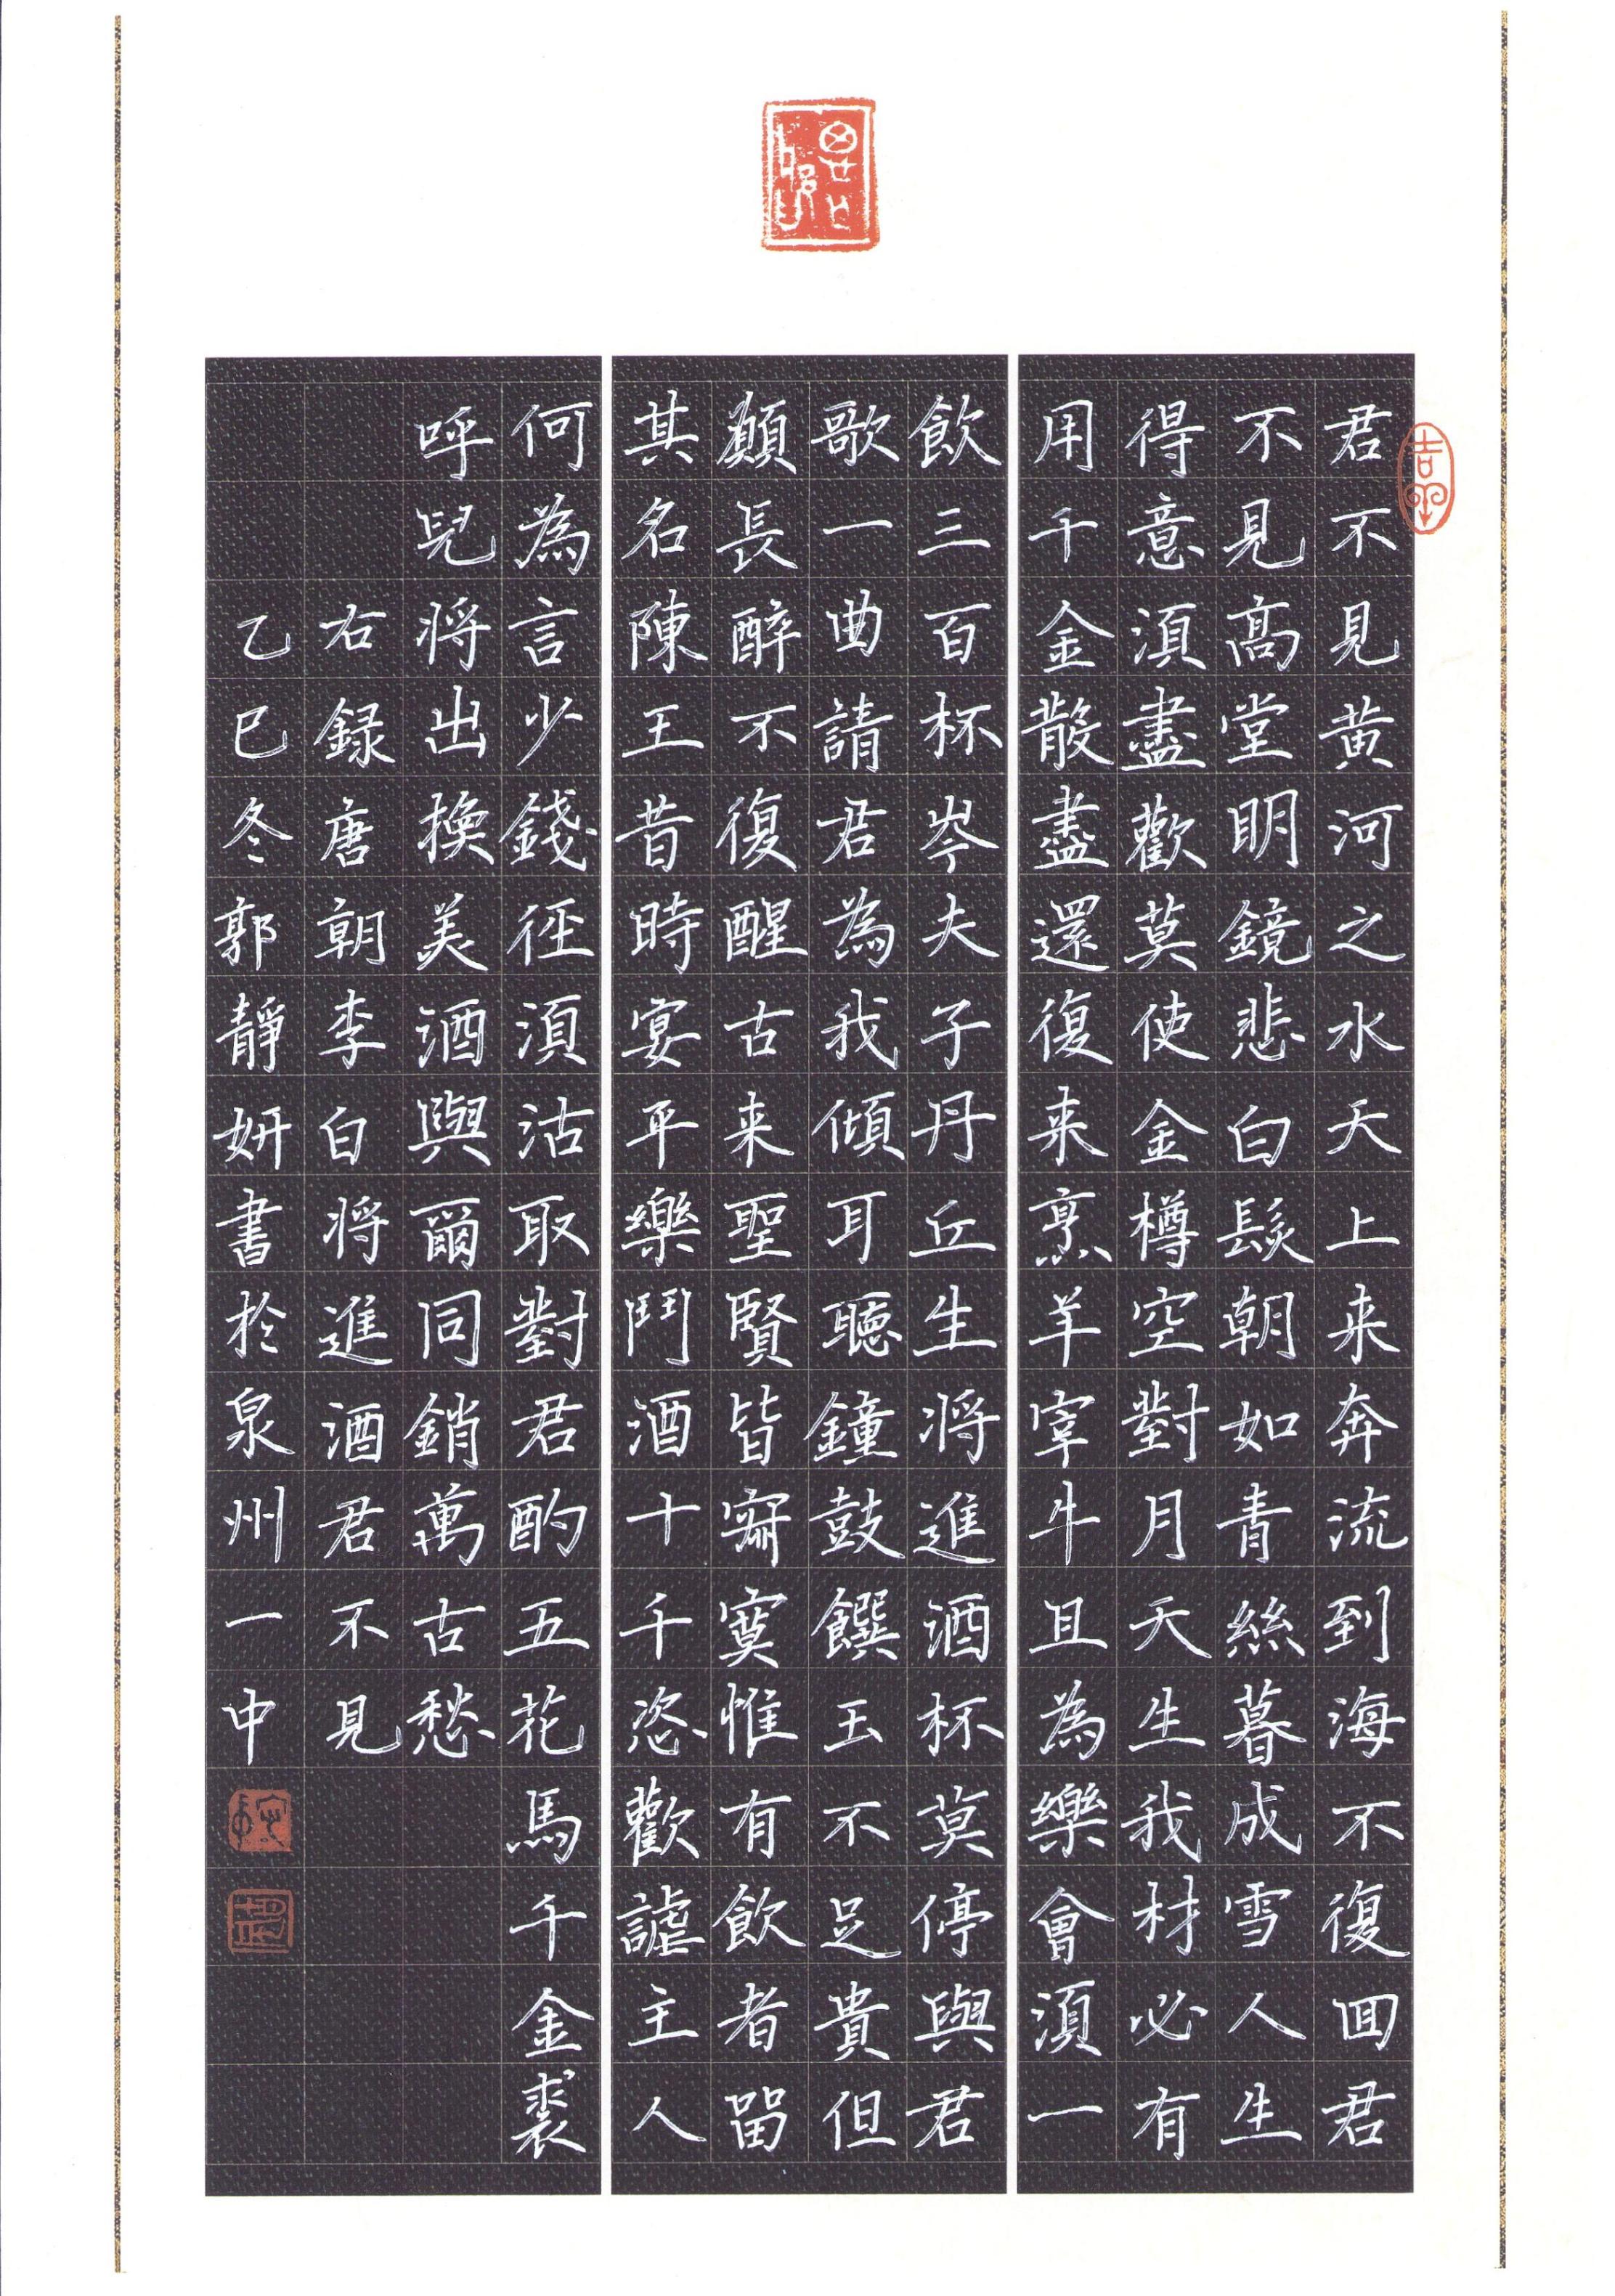 君不見黄河之水天上来奔流到海不復囬君
不見髙堂眀鏡悲白髮朝如青絲暮成雪人生
得意湏盡歡莫使金樽空對月天生我材必有
用千金散盡還復来烹羊宰牛且為樂會湏一
飲三百杯岑夫子丹丘生将進酒杯莫停與君
歌一曲請君為我傾耳聽鐘鼓饌玉不足貴但
願長醉不復醒古来聖賢皆寂寞惟有飲者留
其名陳王昔時宴平樂鬥酒十千恣歡謔主人
何為言少錢徑湏沽取對君酌五花馬千金裘
呼兒将出換美酒與爾同銷萬古愁
右録唐朝李白将進酒君不見
乙巳冬郭靜妍書於泉州一中